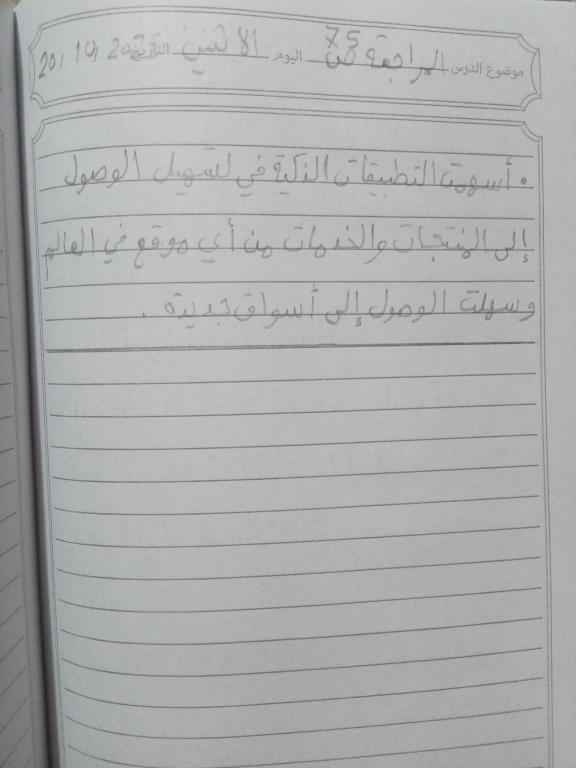 موضوع الدرس المراجعة ص 75 اليوم الاثنين التاريخ 20، 10، 202
• أسهمت التطبيقات الذكية في تسهيل الوصول
إلى المنتجات والخدمات من أي موقع في العالم
وسهلت الوصول إلى أسواق جديدة .